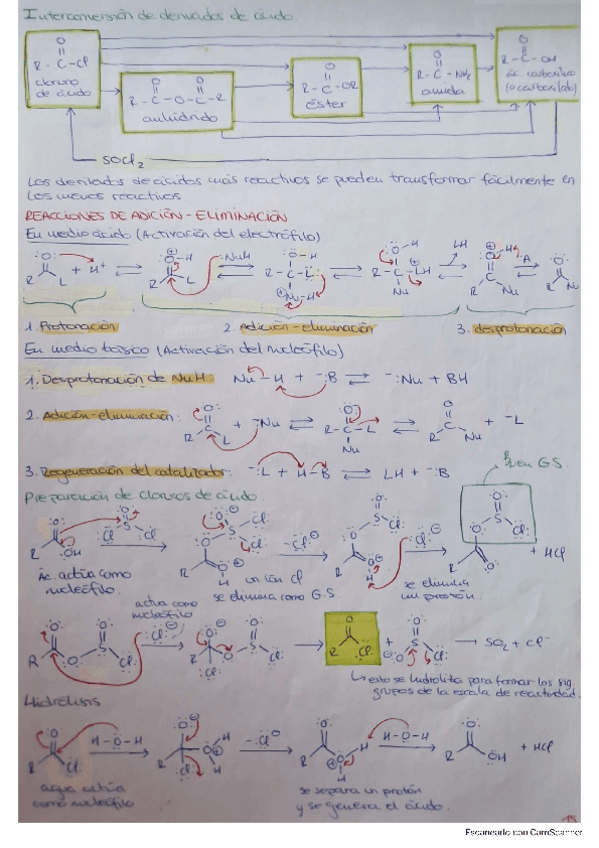 Interconversión de derivados de ácido.
R - C - Cl
cloruro de ácido
R - C - O - C - R
anhídrido
R - C - OR
éster
R - C - NH₂
amida
R - C - OH
ác. carboxílico (o carboxilato)
SOCl₂
Los derivados de ácidos más reactivos se pueden transformar fácilmente en
los menos reactivos.
REACCIONES DE ADICIÓN - ELIMINACIÓN
En medio ácido (Activación del electrófilo)
+ H⁺
:NuH
LH
1. Protonación
2. Adición - eliminación
3. desprotonación
En medio básico (Activación del nucleófilo)
1. Desprotonación de NuH: Nu - H + ⁻:B ⇌ ⁻:Nu + BH
2. Adición - eliminación:
+ ⁻:Nu
+ ⁻L
3. Regeneración del catalizador: ⁻:L + H - B ⇌ LH + ⁻:B
Preparación de cloruros de ácido.
en G.S.
Ác. actúa como
nucleófilo.
un ión Cl
se elimina como G.S
se elimina
un protón
+ HCl
actúa como
nucleófilo
→ SO₂ + Cl⁻
↳ esto se hidroliza para formar los sig.
grupos de la escala de reactividad.
Hidrólisis
H - O - H
H - O - H
+ HCl
agua actúa
como nucleófilo
se separa un protón
y se genera el ácido.
Escaneado con CamScanner